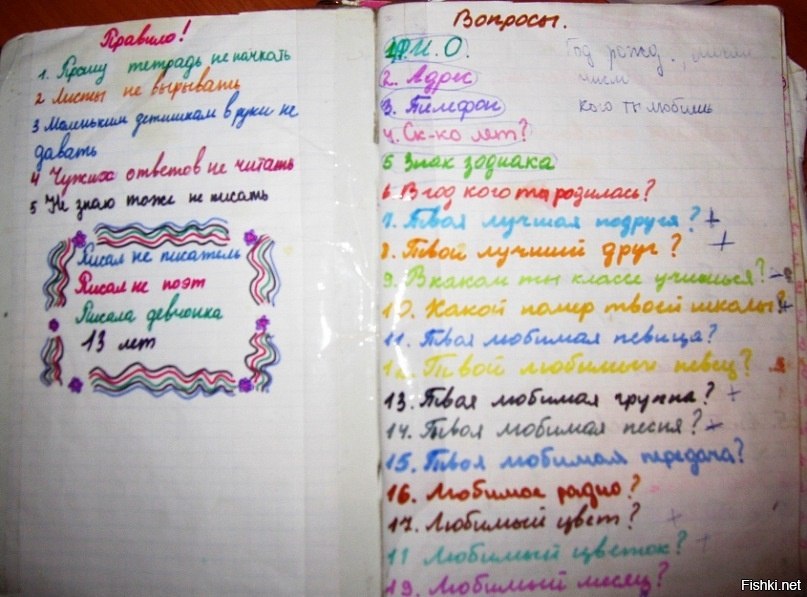 Правило!
1. Прошу тетрадь не пачкать
2 Листы не вырывать
3 Маленьким детишкам в руки не
давать
4 Чужих ответов не читать
5 Не знаю тоже не писать
Писал не писатель
Писал не поэт
Писала девчонка
13 лет
Вопросы.
1. Ф.И.О.
2. Адрес
3. Телефон
4. Ск-ко лет?
5 Знак зодиака
6. В год кого ты родилась?
7. Твоя лучшая подруга? +
8. Твой лучший друг? +
9. В каком ты классе учишься?
10. Какой номер твоей школы? +
11. Твоя любимая певица?
12. Твой любимый певец?
13. Твоя любимая группа? +
14. Твоя любимая песня? +
15. Твоя любимая передача?
16. Любимое радио?
17. Любимый цвет? +
11 Любимый цветок? +
19. Любимый месяц?
Год рожд.,
кого ты любишь
Fishki.net